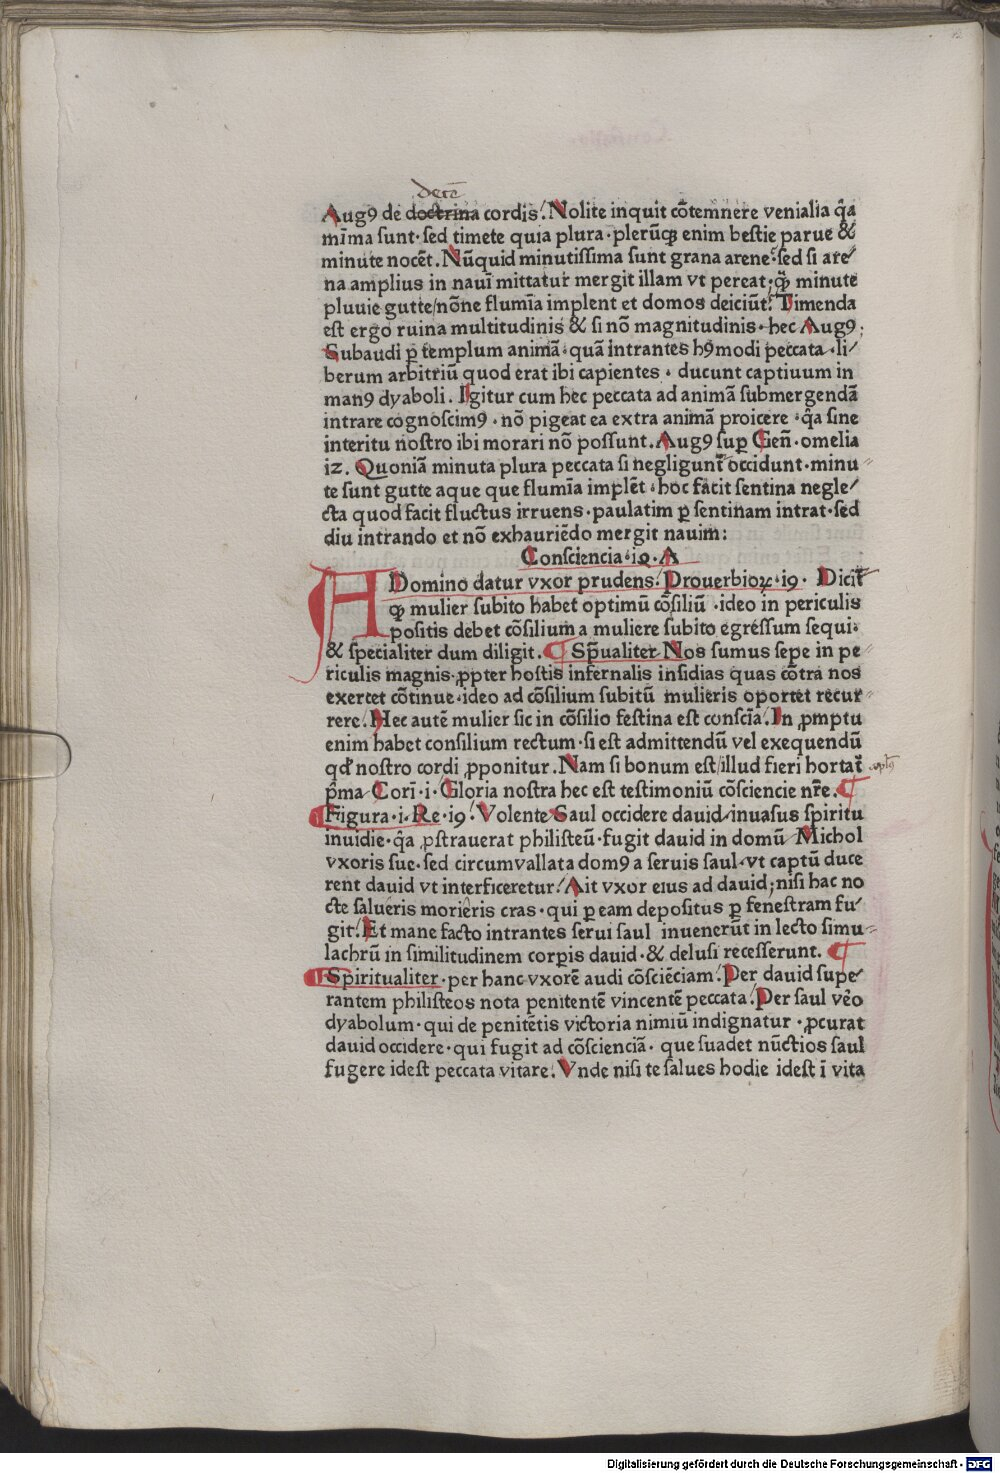 decē
Augꝰ de doctrina cordis. Nolite inquit cōtemnere venialia q̄a
mīma sunt · sed timete quia plura · plerūqꝫ enim bestie parue &
minute nocēt. Nūquid minutissima sunt grana arene · sed si are
na amplius in nauī mittatur mergit illam vt pereat ; qꝫ minute
pluuie gutte / nōne flumīa implent et domos deiciūt. Timenda
est ergo ruina multitudinis & si nō magnitudinis · hec Augꝰ :
Subaudi ꝑ templum animā · quā intrantes hꝰmodi peccata · li/
berum arbitriū quod erat ibi capientes · ducunt captiuum in
manꝰ dyaboli. Igitur cum hec peccata ad animā submergendā
intrare cognoscimꝰ · nō pigeat ea extra animā proicere · q̄a sine
interitu nostro ibi morari nō possunt. Augꝰ suꝑ Gen̄ · omelia
i2. Quoniā minuta plura peccata si negligunt̄ occidunt · minu⸗
te sunt gutte aque que flumīa implēt · hoc facit sentina negle/
cta quod facit fluctus irruens · paulatim ꝑ sentinam intrat · sed
diu intrando et nō exhauriēdo mergit nauim :
Consciencia · iꝯ · A
A Domino datur vxor prudens. Prouerbioꝝ · i9 · Dicit̄
qꝫ mulier subito habet optimū cōsiliū · ideo in periculis
positis debet cōsilium a muliere subito egressum sequi ·
& specialiter dum diligit. ¶ Sp̄ualiter Nos sumus sepe in pe⸗
riculis magnis · ꝓpter hostis infernalis insidias quas cōtra nos
exercet cōtinue · ideo ad cōsilium subitū mulieris oportet recur⸗
rere. Hec autē mulier sic in cōsilio festina est conscīa. In ꝓmptu
enim habet consilium rectum · si est admittendū vel exequendū
qd̄ nostro cordi ꝓponitur. Nam si bonum est / illud fieri hortat̄
p̄ma Corī · i · Gloria nostra hec est testimoniū cōsciencie nr̄e. ¶
Figura · i · Re · i9. Volente Saul occidere dauid / inuasus spiritu
inuidie · q̄a ꝓstrauerat philisteū · fugit dauid in domū Michol
vxoris sue · sed circumvallata domꝰ a seruis saul · vt captū duce
rent dauid vt interficeretur. Ait vxor eius ad dauid ; nisi hac no
cte salueris morieris cras · qui ꝑ eam depositus ꝑ fenestram fu/
git. Et mane facto intrantes serui saul inuenerūt in lecto simu⸗
lachrū in similitudinem corꝑis dauid · & delusi recesserunt. ¶
Spiritualiter · per hanc vxorē audi cōsciēciam. Per dauid supe/
rantem philisteos nota penitentē vincentē peccata. Per saul v̇o
dyabolum · qui de penitētis victoria nimiū indignatur · ꝓcurat
dauid occidere · qui fugit ad cōscienciā · que suadet nūctios saul
fugere idest peccata vitare. Vnde nisi te salues hodie idest ī vita
Digitalisierung gefördert durch die Deutsche Forschungsgemeinschaft - DFG